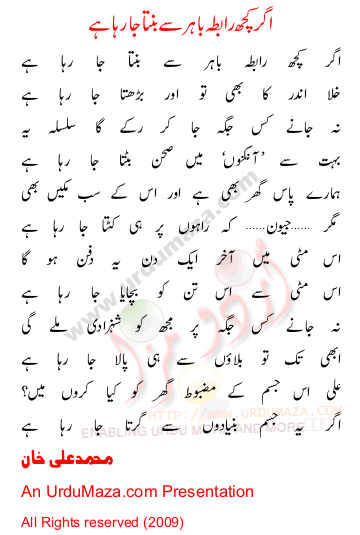 اگر کچھ رابطہ باہر سے بنتا جا رہا ہے
اگر کچھ رابطہ باہر سے بنتا جا رہا ہے
خلا اندر کا بھی تو اور بڑھتا جا رہا ہے
نہ جانے کس جگہ جا کر رکے گا سلسلہ یہ
بہت سے ’آنگنوں‘ میں صحن بٹتا جا رہا ہے
ہمارے پاس گھر بھی ہے اور اس کے سب مکیں بھی
مگر ......جیون...... کہ راہوں پر ہی کٹتا جا رہا ہے
اس مٹی میں آخر ایک دن یہ دفن ہو گا
اس مٹی سے اس تن کو بچایا جا رہا ہے
نہ جانے کس جگہ پر مجھ کو شہزادی ملے گی
ابھی تک تو بلاؤں سے ہی پالا جا رہا ہے
علی اس جسم کے مضبوط گھر کو کیا کروں میں؟
اگر یہ جسم بنیادوں سے گرتا جا رہا ہے
محمد علی خان
An UrduMaza.com Presentation
All Rights reserved (2009)
www.urdumaza.com
اردو مزا
HTTP://WWW.URDUMAZA.COM
ENABLING URDU MEDIA AND MORE